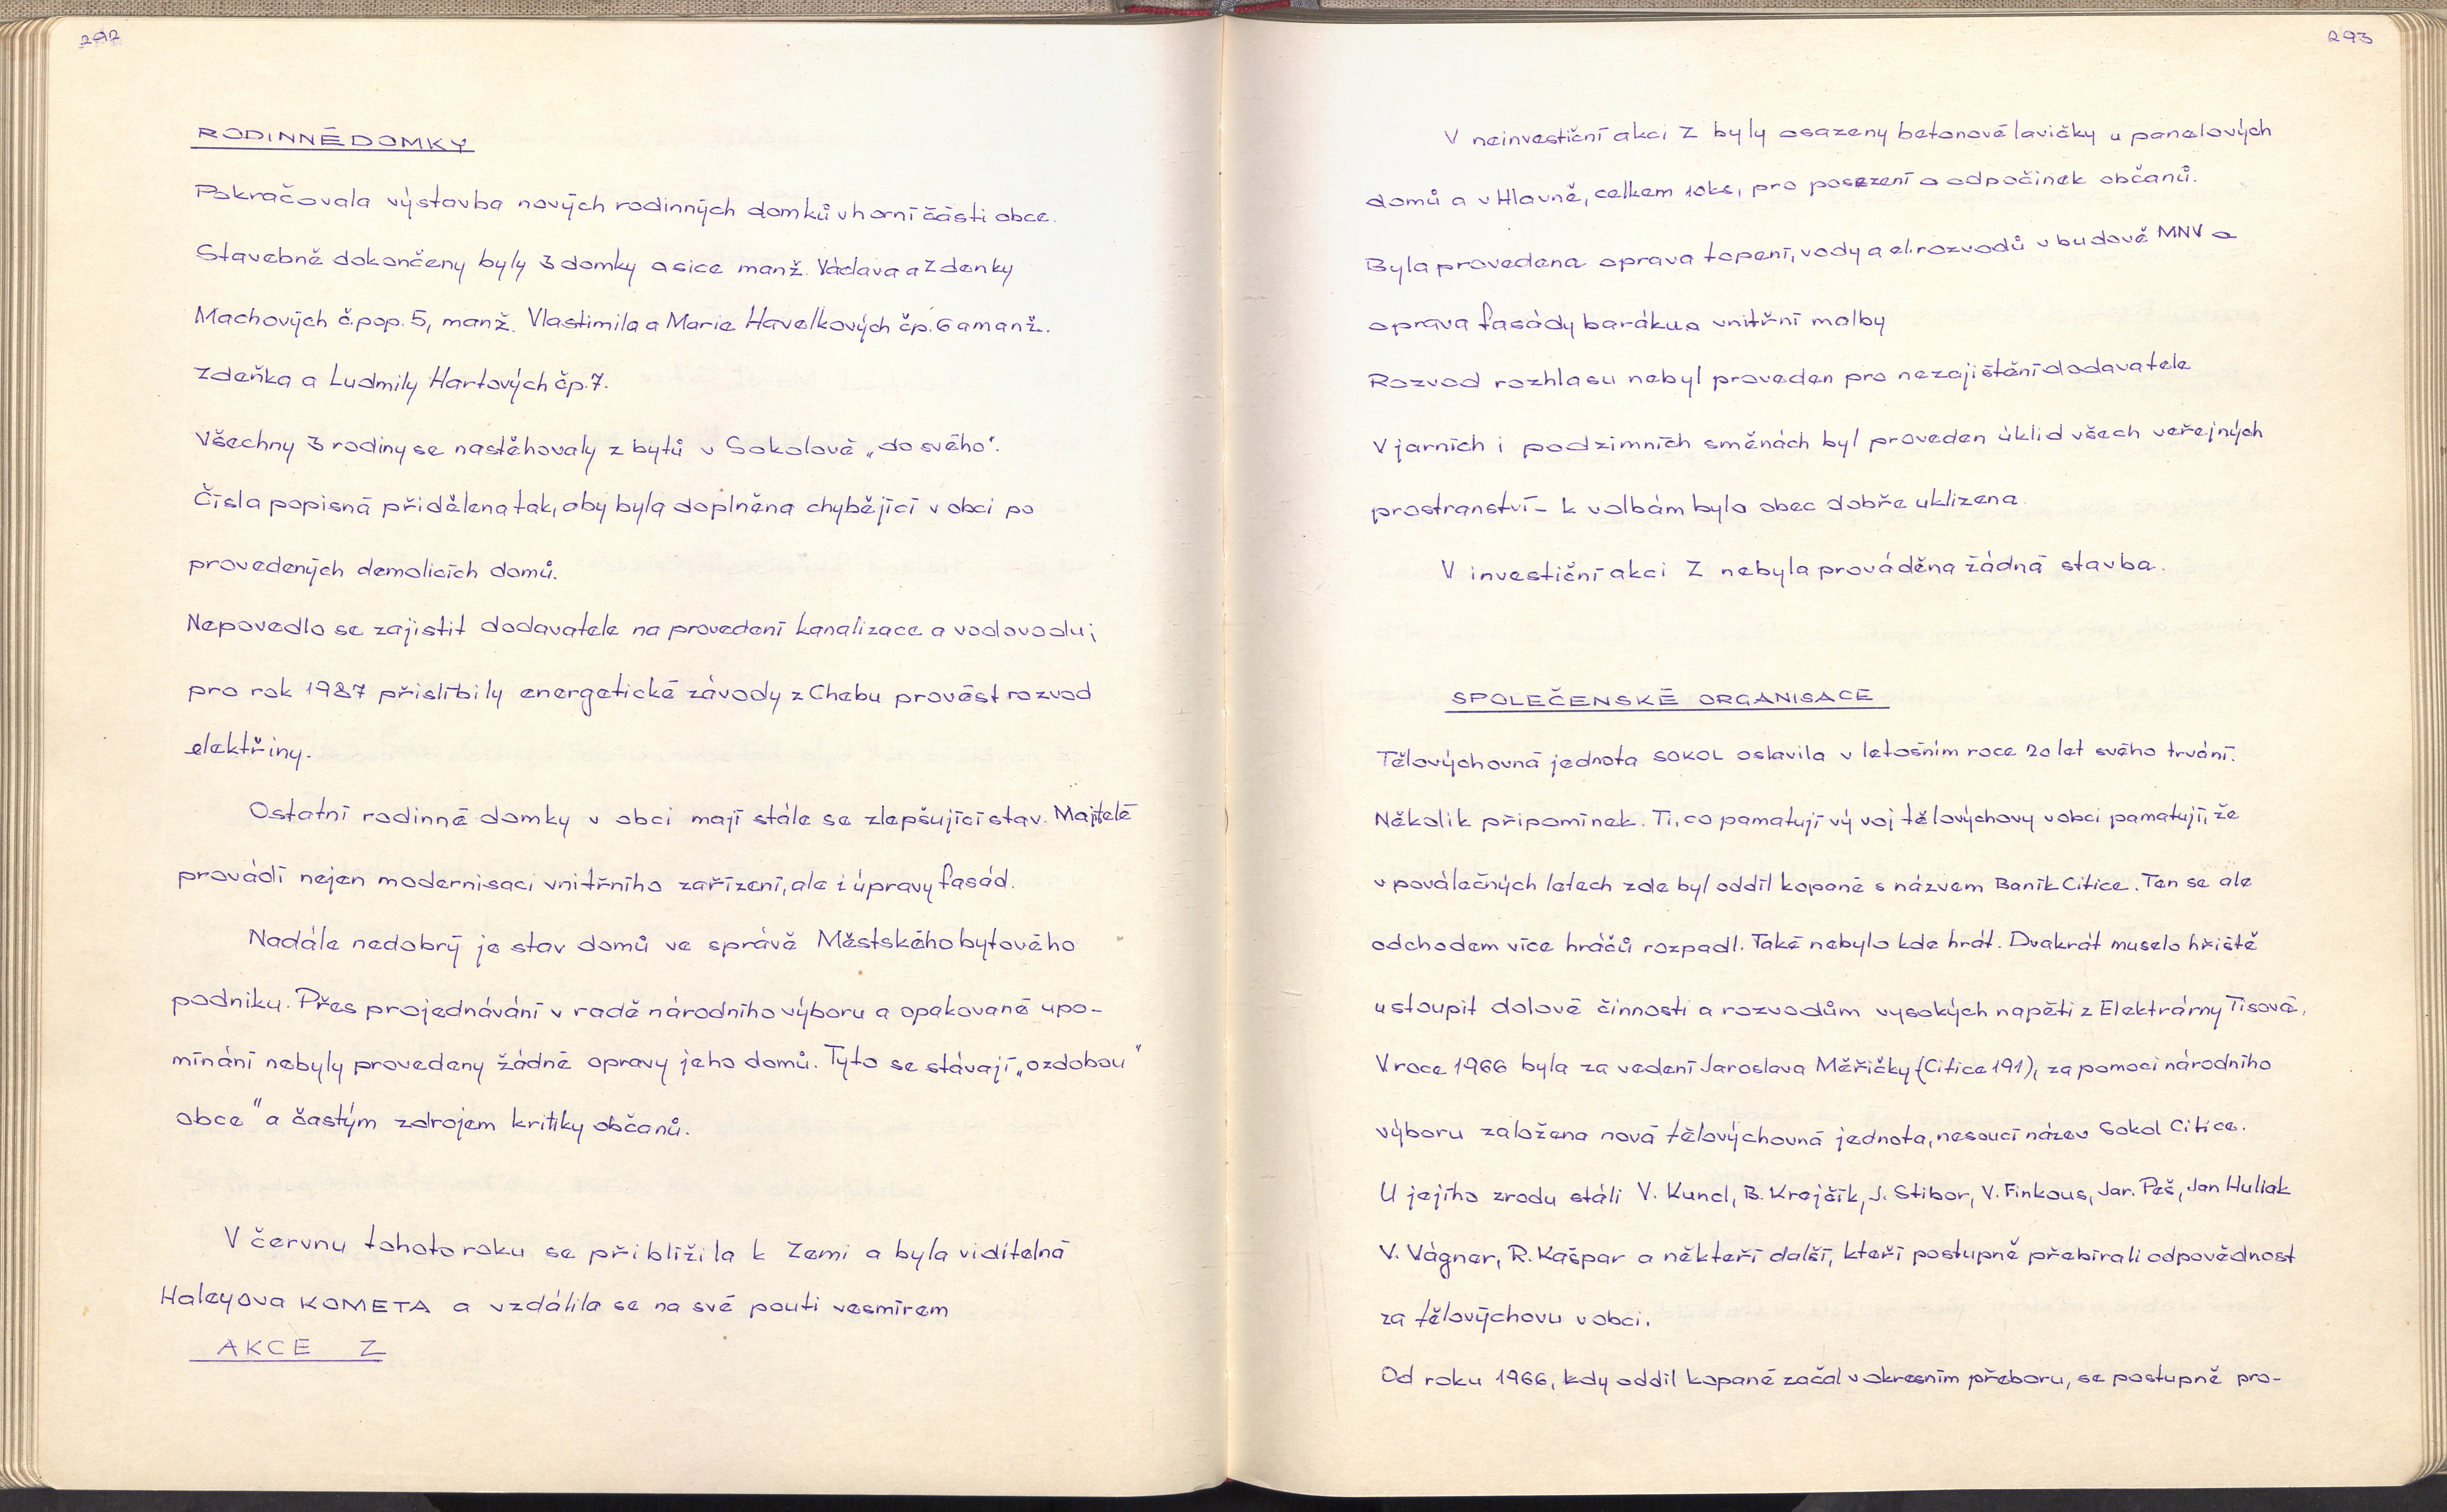 292
RODINNÉ DOMKY
Pokračovala výstavba nových rodinných domků v horní části obce.
Stavebně dokončeny byly 3 domky a sice manž. Václava a Zdenky
Machových č.pop. 5, manž. Vlastimila a Marie Havelkových čp. 6 a manž.
Zdeňka a Ludmily Hartových čp. 7.
Všechny 3 rodiny se nastěhovaly z bytů v Sokolově „do svého".
Čísla popisná přidělena tak, aby byla doplněna chybějící v obci po
provedených demolicích domů.
Nepovedlo se zajistit dodavatele na provedení kanalizace a vodovodu;
pro rok 1987 přislíbily energetické závody z Chebu provést rozvod
elektřiny.
Ostatní rodinné domky v obci mají stále se zlepšující stav. Majitelé
provádí nejen modernisaci vnitřního zařízení, ale i úpravy fasád.
Nadále nedobrý je stav domů ve správě Městského bytového
podniku. Přes projednávání v radě národního výboru a opakované upo-
mínání nebyly provedeny žádné opravy jeho domů. Tyto se stávají „ozdobou"
obce" a častým zdrojem kritiky občanů.
V červnu tohoto roku se přiblížila k Zemi a byla viditelná
Haleyova KOMETA a vzdálila se na své pouti vesmírem
AKCE Z
293
V neinvestiční akci Z byly osazeny betonové lavičky u panelových
domů a v Hlavně, celkem 10ks, pro posezení a odpočinek občanů.
Byla provedena oprava topení, vody a el. rozvodů v budově MNV a
oprava fasády baráku a vnitřní malby
Rozvod rozhlasu nebyl proveden pro nezajištění dodavatele
V jarních i podzimních směnách byl proveden úklid všech veřejných
prostranství - k volbám byla obec dobře uklizena
V investiční akci Z nebyla prováděna žádná stavba.
SPOLEČENSKÉ ORGANISACE
Tělovýchovná jednota SOKOL oslavila v letošním roce 20 let svého trvání.
Několik připomínek. Ti, co pamatují vývoj tělovýchovy v obci pamatují, že
v poválečných letech zde byl oddíl kopané s názvem Baník Citice. Ten se ale
odchodem více hráčů rozpadl. Také nebylo kde hrát. Dvakrát muselo hřiště
ustoupit dolové činnosti a rozvodům vysokých napětí z Elektrárny Tisová.
V roce 1966 byla za vedení Jaroslava Měřičky (Citice 191), za pomoci národního
výboru založena nová tělovýchovná jednota, nesoucí název Sokol Citice.
U jejího zrodu stáli V. Kuncl, B. Krejčík, J. Stibor, V. Finkous, Jar. Peš, Jan Huliak
V. Vágner, R. Kašpar a někteří další, kteří postupně přebírali odpovědnost
za tělovýchovu v obci.
Od roku 1966, kdy oddíl kopané začal v okresním přeboru, se postupně pro-